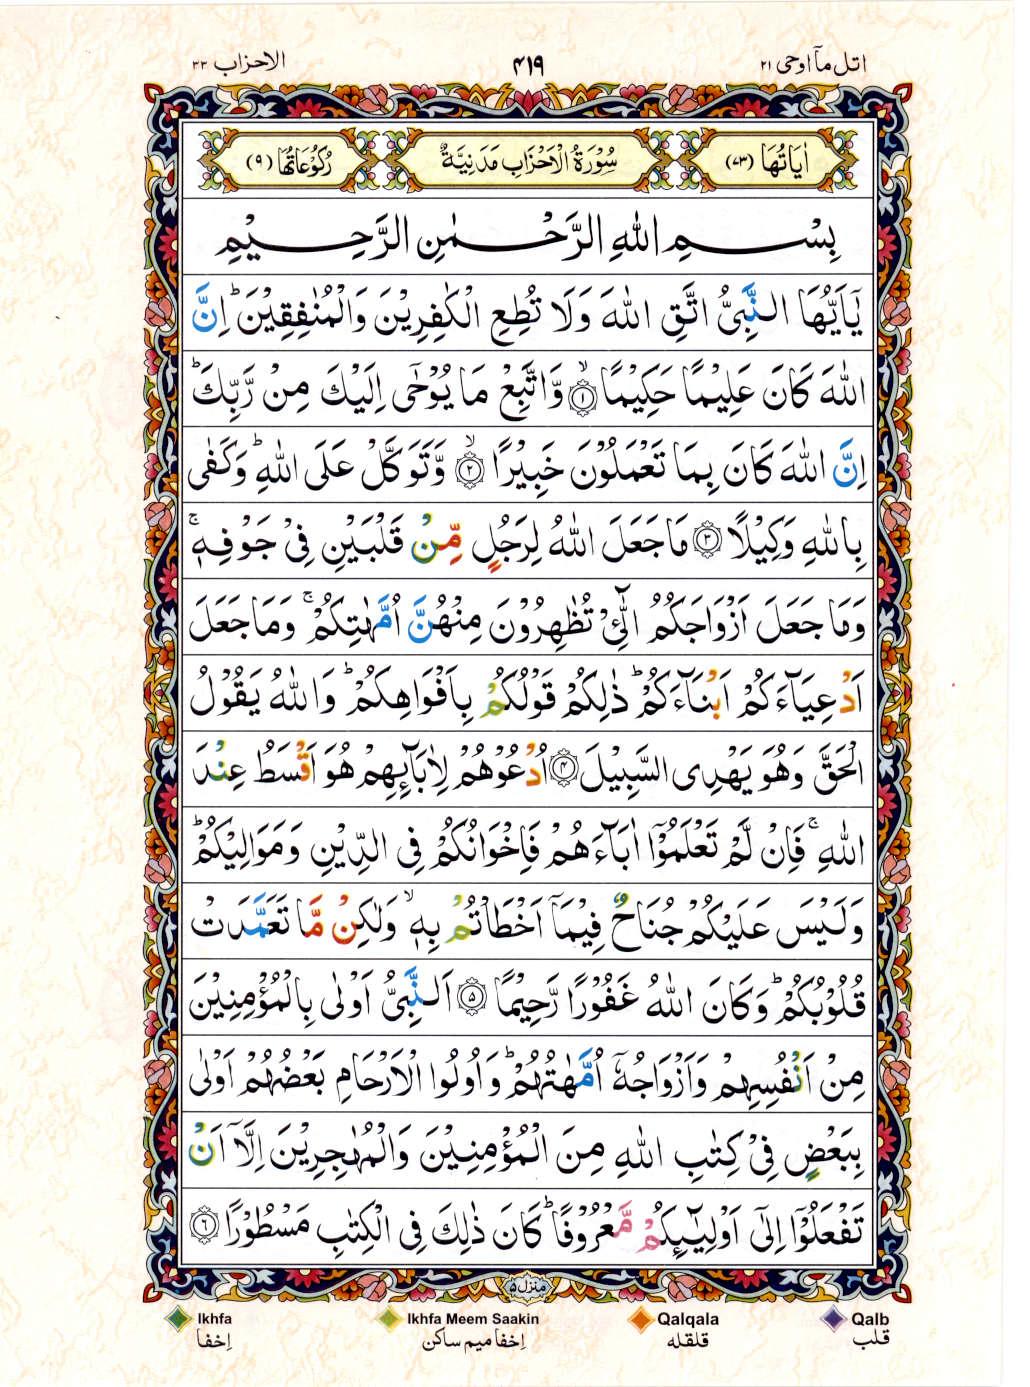 اتل مآ اوحی ۲۱
۴۱۹
الاحزاب ۳۳
اٰیَاتُهَا (۷۳)
سُوْرَةُ الْاَحْزَابِ مَدَنِیَّةٌ
رُكُوْعَاتُهَا (۹)
بِسْمِ اللّٰهِ الرَّحْمٰنِ الرَّحِیْمِ
یٰۤاَیُّهَا النَّبِیُّ اتَّقِ اللّٰهَ وَلَا تُطِعِ الْكٰفِرِیْنَ وَالْمُنٰفِقِیْنَ ؕ اِنَّ
اللّٰهَ كَانَ عَلِیْمًا حَكِیْمًا ۙ﴿۱﴾ وَّاتَّبِعْ مَا یُوْحٰۤی اِلَیْكَ مِنْ رَّبِّكَ ؕ
اِنَّ اللّٰهَ كَانَ بِمَا تَعْمَلُوْنَ خَبِیْرًا ۙ﴿۲﴾ وَّتَوَكَّلْ عَلَی اللّٰهِ ؕ وَكَفٰی
بِاللّٰهِ وَكِیْلًا ﴿۳﴾ مَا جَعَلَ اللّٰهُ لِرَجُلٍ مِّنْ قَلْبَیْنِ فِیْ جَوْفِهٖ ۚ
وَمَا جَعَلَ اَزْوَاجَكُمُ الّٰٓئِیْ تُظٰهِرُوْنَ مِنْهُنَّ اُمَّهٰتِكُمْ ۚ وَمَا جَعَلَ
اَدْعِیَآءَكُمْ اَبْنَآءَكُمْ ؕ ذٰلِكُمْ قَوْلُكُمْ بِاَفْوَاهِكُمْ ؕ وَاللّٰهُ یَقُوْلُ
الْحَقَّ وَهُوَ یَهْدِی السَّبِیْلَ ﴿۴﴾ اُدْعُوْهُمْ لِاٰبَآئِهِمْ هُوَ اَقْسَطُ عِنْدَ
اللّٰهِ ۚ فَاِنْ لَّمْ تَعْلَمُوْۤا اٰبَآءَهُمْ فَاِخْوَانُكُمْ فِی الدِّیْنِ وَمَوَالِیْكُمْ ؕ
وَلَیْسَ عَلَیْكُمْ جُنَاحٌ فِیْمَاۤ اَخْطَاْتُمْ بِهٖ ۙ وَلٰكِنْ مَّا تَعَمَّدَتْ
قُلُوْبُكُمْ ؕ وَكَانَ اللّٰهُ غَفُوْرًا رَّحِیْمًا ﴿۵﴾ اَلنَّبِیُّ اَوْلٰی بِالْمُؤْمِنِیْنَ
مِنْ اَنْفُسِهِمْ وَاَزْوَاجُهٗۤ اُمَّهٰتُهُمْ ؕ وَاُولُوا الْاَرْحَامِ بَعْضُهُمْ اَوْلٰی
بِبَعْضٍ فِیْ كِتٰبِ اللّٰهِ مِنَ الْمُؤْمِنِیْنَ وَالْمُهٰجِرِیْنَ اِلَّاۤ اَنْ
تَفْعَلُوْۤا اِلٰۤی اَوْلِیٰٓئِكُمْ مَّعْرُوْفًا ؕ كَانَ ذٰلِكَ فِی الْكِتٰبِ مَسْطُوْرًا ﴿۶﴾
منزل ۵
Ikhfa
Ikhfa Meem Saakin
Qalqala
Qalb
اِخفا
اِخفا میم ساکن
قلقله
قلب